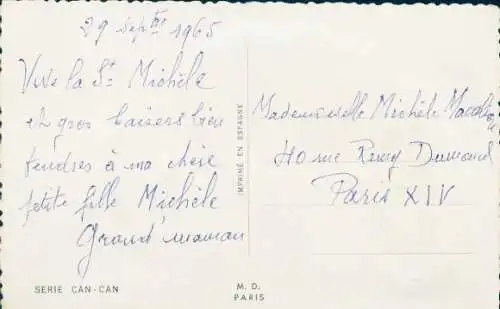 29 sepbre 1965
Vive la St Michèle
et gros baisers bien
tendres à ma chère
petite fille Michèle
Grand'maman
SERIE CAN-CAN
IMPRIMÉ EN ESPAGNE
M. D.
PARIS
Mademoiselle Michèle
40 rue Remy Dumoncel
Paris XIV